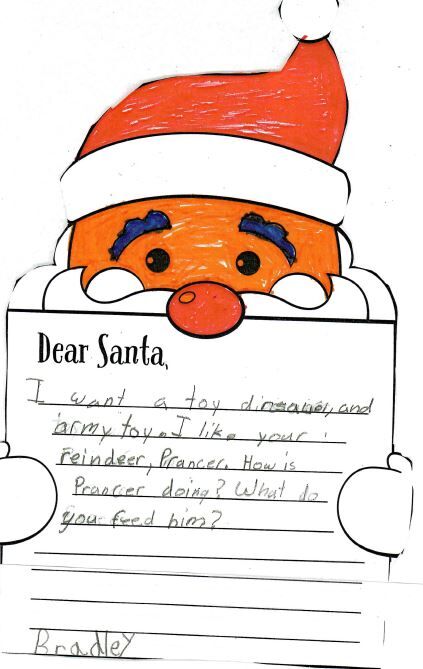 Dear Santa,
I want a toy dinosaur, and
army toy. I like your
reindeer, Prancer. How is
Prancer doing? What do
you feed him?
Bradley